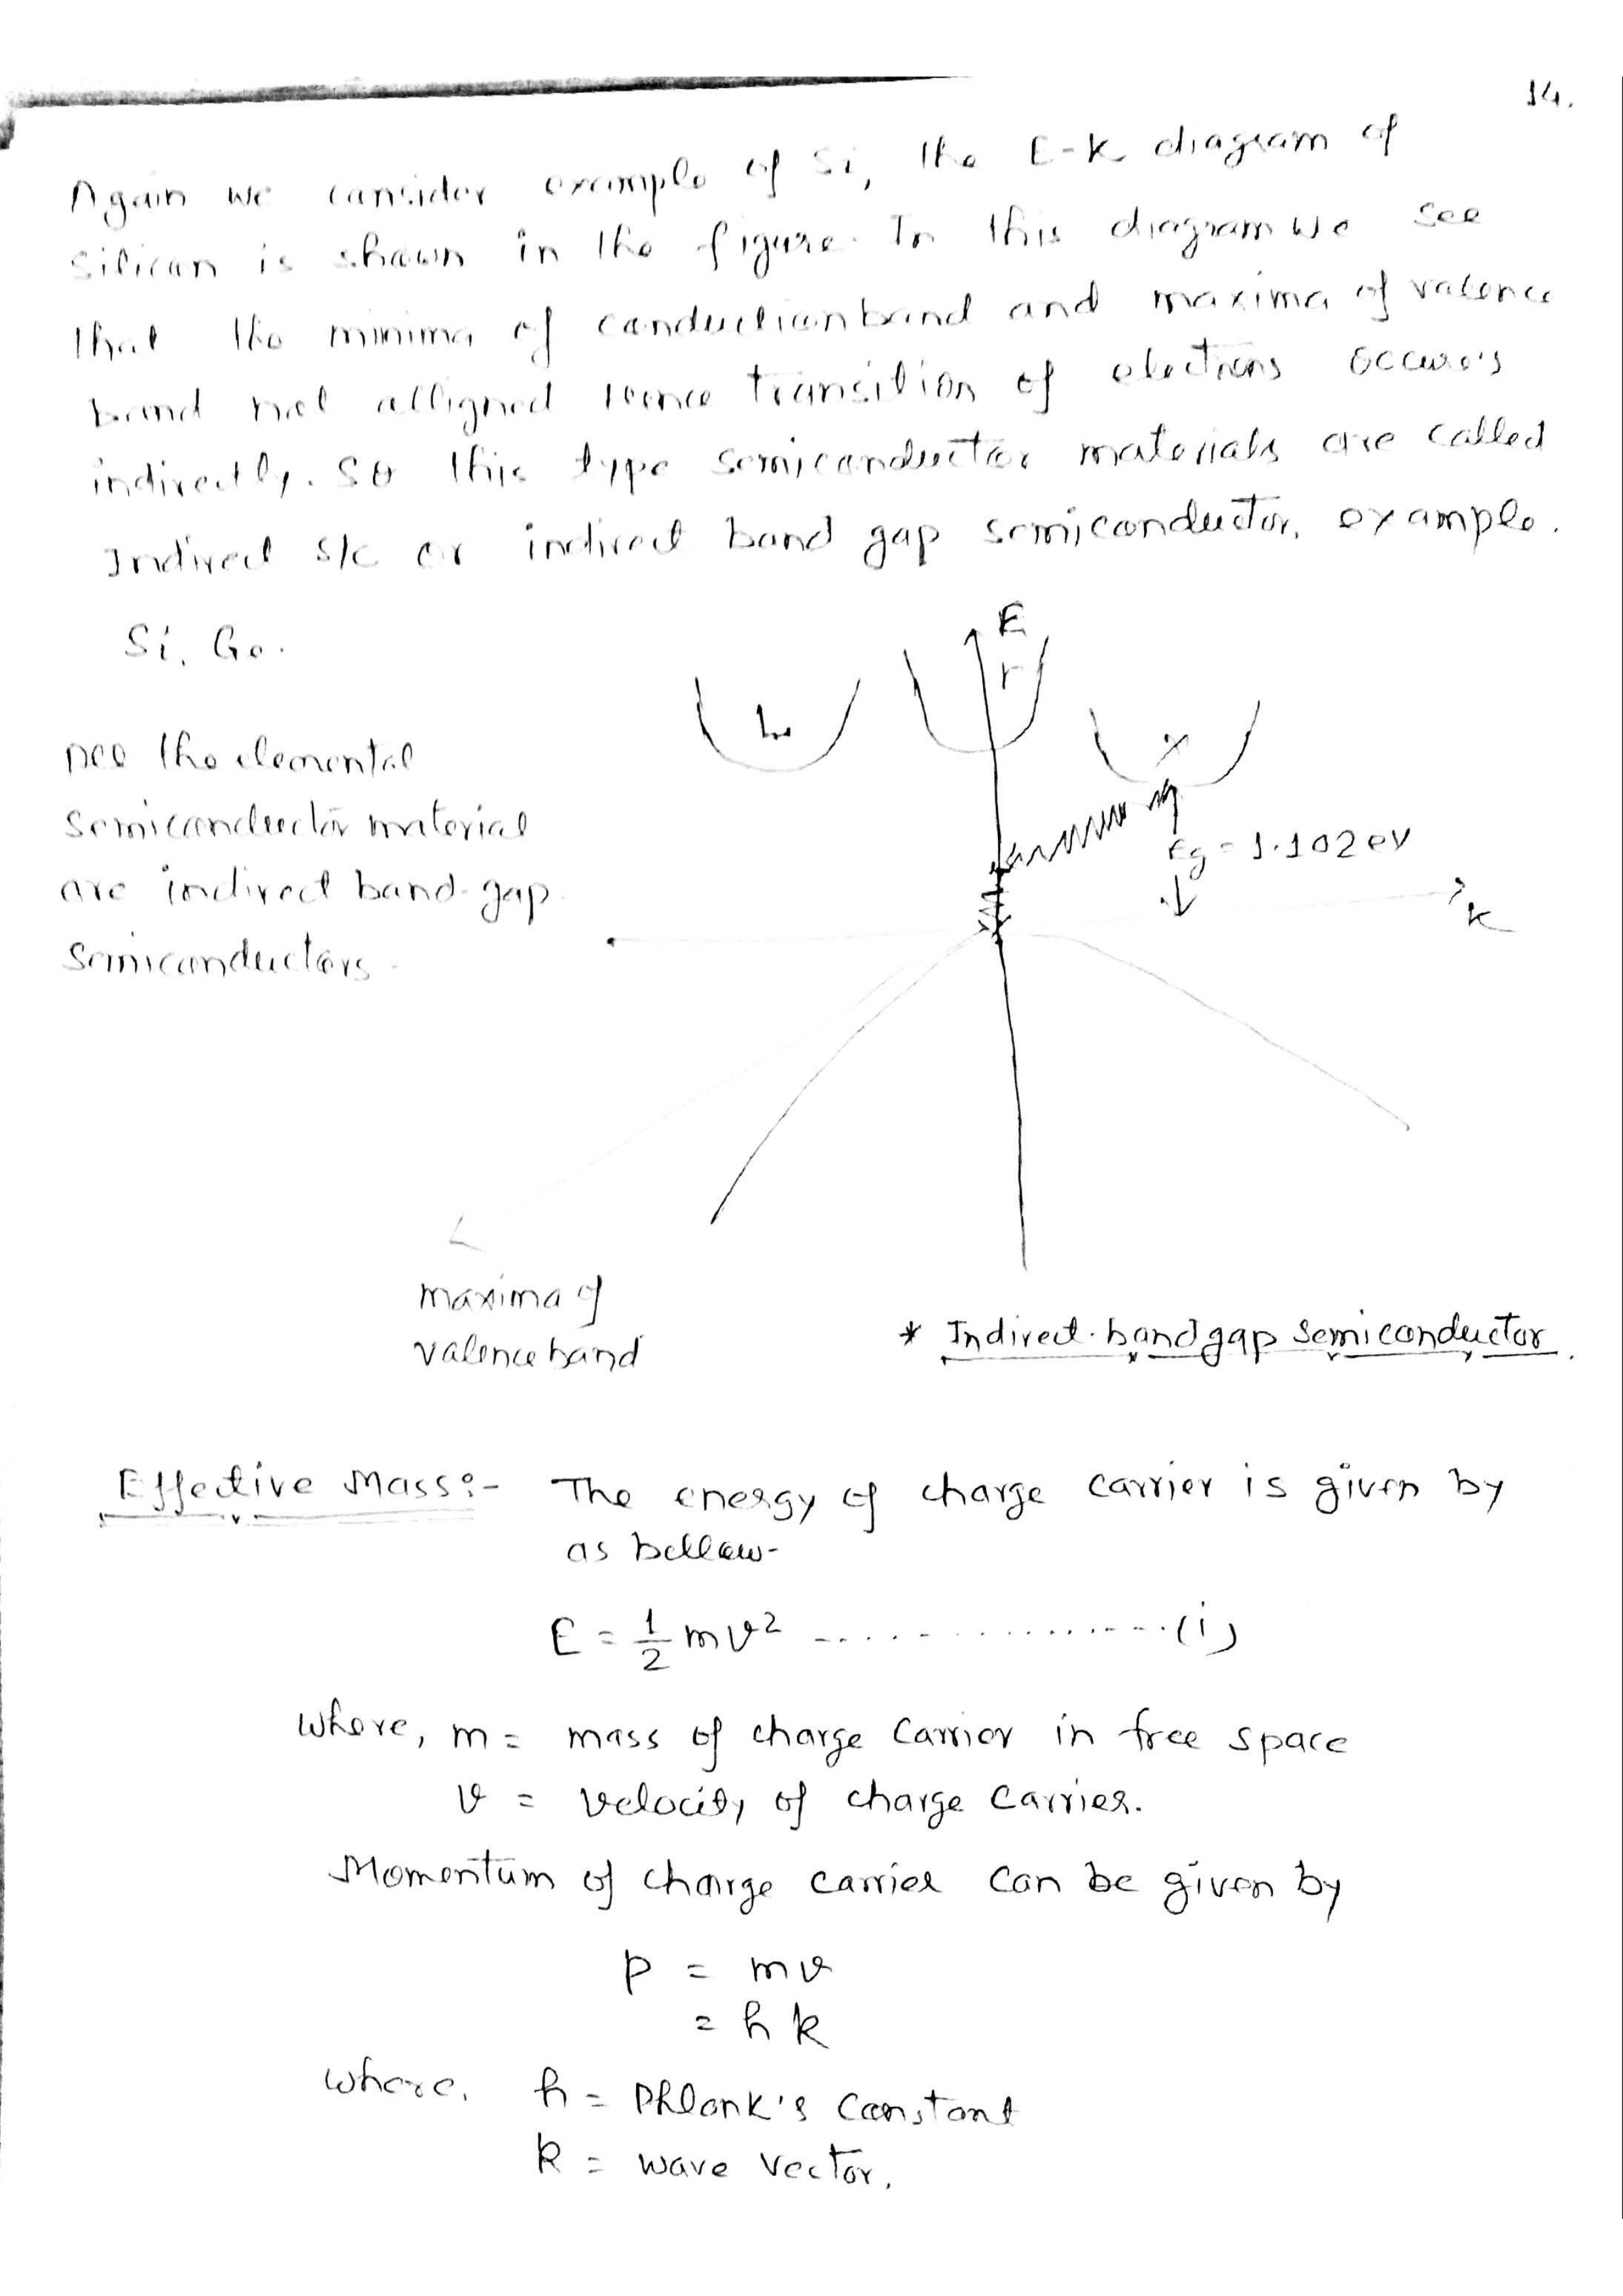 14.
Again we consider example of Si, the E-K diagram of
silicon is shown in the figure. In this diagram we see
that the minima of conduction band and maxima of valence
band not alligned hence transition of electrons occure's
indirectly. So this type semiconductor materials are called
Indirect s/c or indirect band gap semiconductor. example.
Si, Ge.
E
Γ
L
X
All the elemental
semiconductor material
are indirect band-gap
semiconductors.
Eg = 1.102 eV
K
maxima of
valence band
* Indirect band gap semiconductor.
Effective Mass:- The energy of charge carrier is given by
as bellow-
E = 1/2 mv² ---------------- (i)
where, m = mass of charge carrier in free space
v = velocity of charge carrier.
Momentum of charge carrier can be given by
p = mv
= ħk
where, ħ = Phlank's constant
k = wave vector.